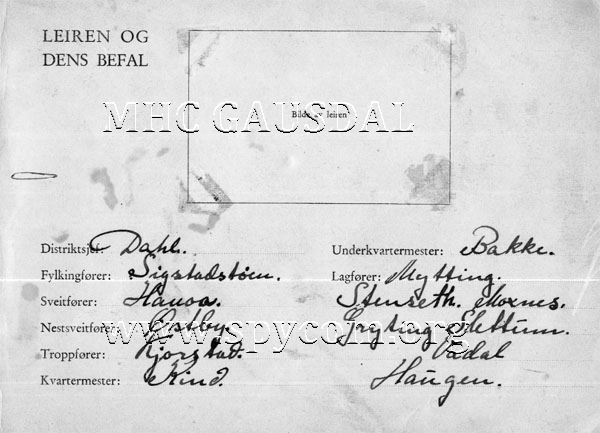 LEIREN OG
DENS BEFAL
Bilde av leiren
MHC GAUSDAL
Distriktsjef: Dahl.
Fylkingfører: Sigstadstøen.
Sveitfører: Hauoa.
Nestsveitfører: Østby
Troppfører: Kjorstad.
Kvartermester: Kind.
Underkvartermester: Bakke.
Lagfører: Mytting.
Stenseth. Moxnes.
Gryting Slettum.
Vadal
Haugen.
www.spycom.org